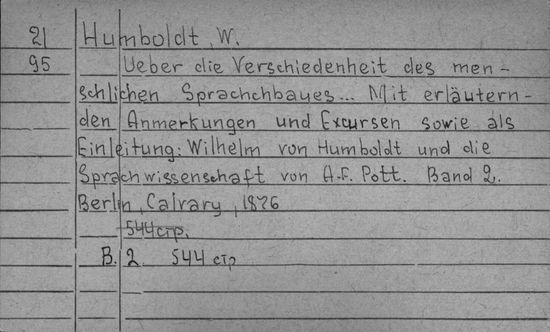 21 Humboldt, W.
95 Ueber die Verschiedenheit des men-
schlichen Sprachchbaues... Mit erläutern-
den Anmerkungen und Excursen sowie als
Einleitung: Wilhelm von Humboldt und die
Sprachwissenschaft von A.F. Pott. Band 2.
Berlin, Calvary, 1876
544 стр.
B. 2 544 стр